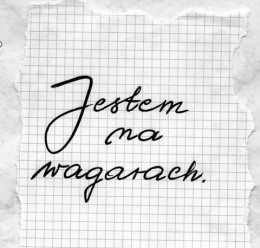 Jestem
na
wagarach.